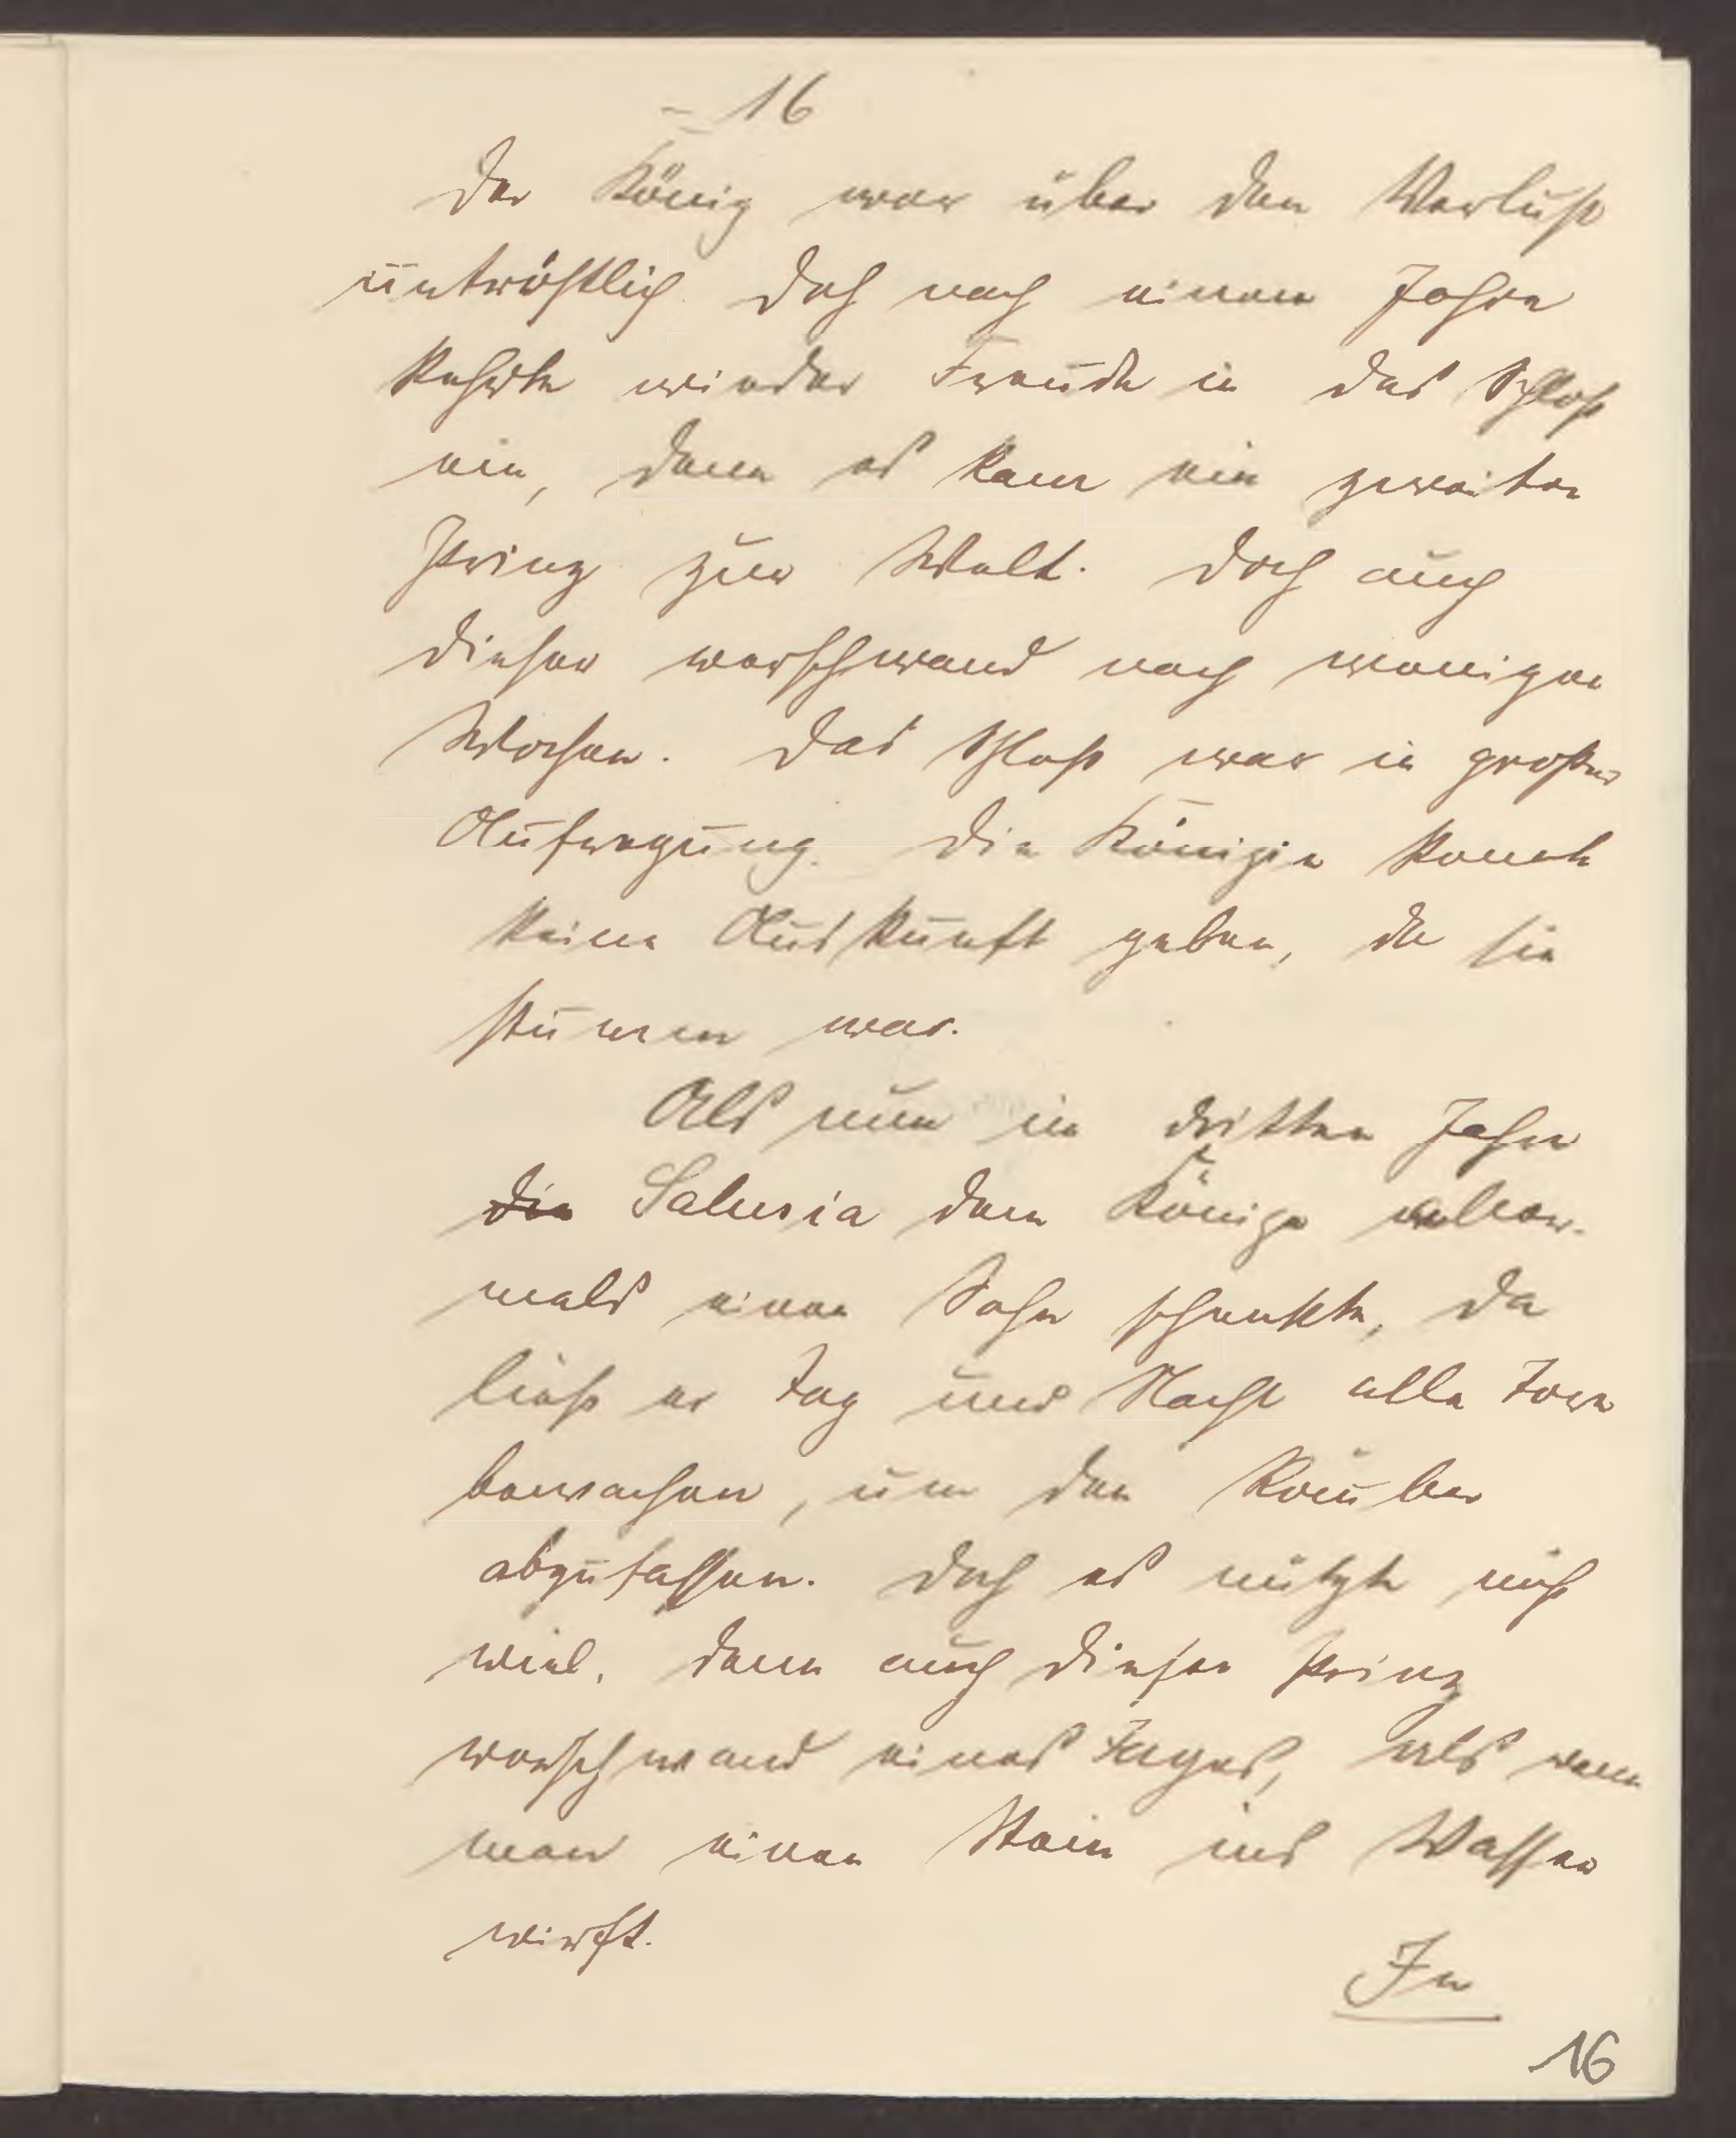 – 16
Der König war über den Verlust
untröstlich. Doch nach einem Jahre
kehrte wieder Freude in das Schloß
ein, denn es kam ein zweiter
Prinz zur Welt. Doch auch
dieser verschwand nach wenigen
Wochen. Das Schloß war in großer
Aufregung. Die Königin konnte
keine Auskunft geben, da sie
stumm war.
Als nun im dritten Jahre
die Salusia dem Könige aber-
mals einen Sohn schenkte, da
ließ er Tag und Nacht alle Tore
bewachen, um den Räuber
abzufassen. Doch es nützte nicht
viel, denn auch dieser Prinz
verschwand eines Tages, als wenn
man einen Stein ins Wasser
wirft.
In
16